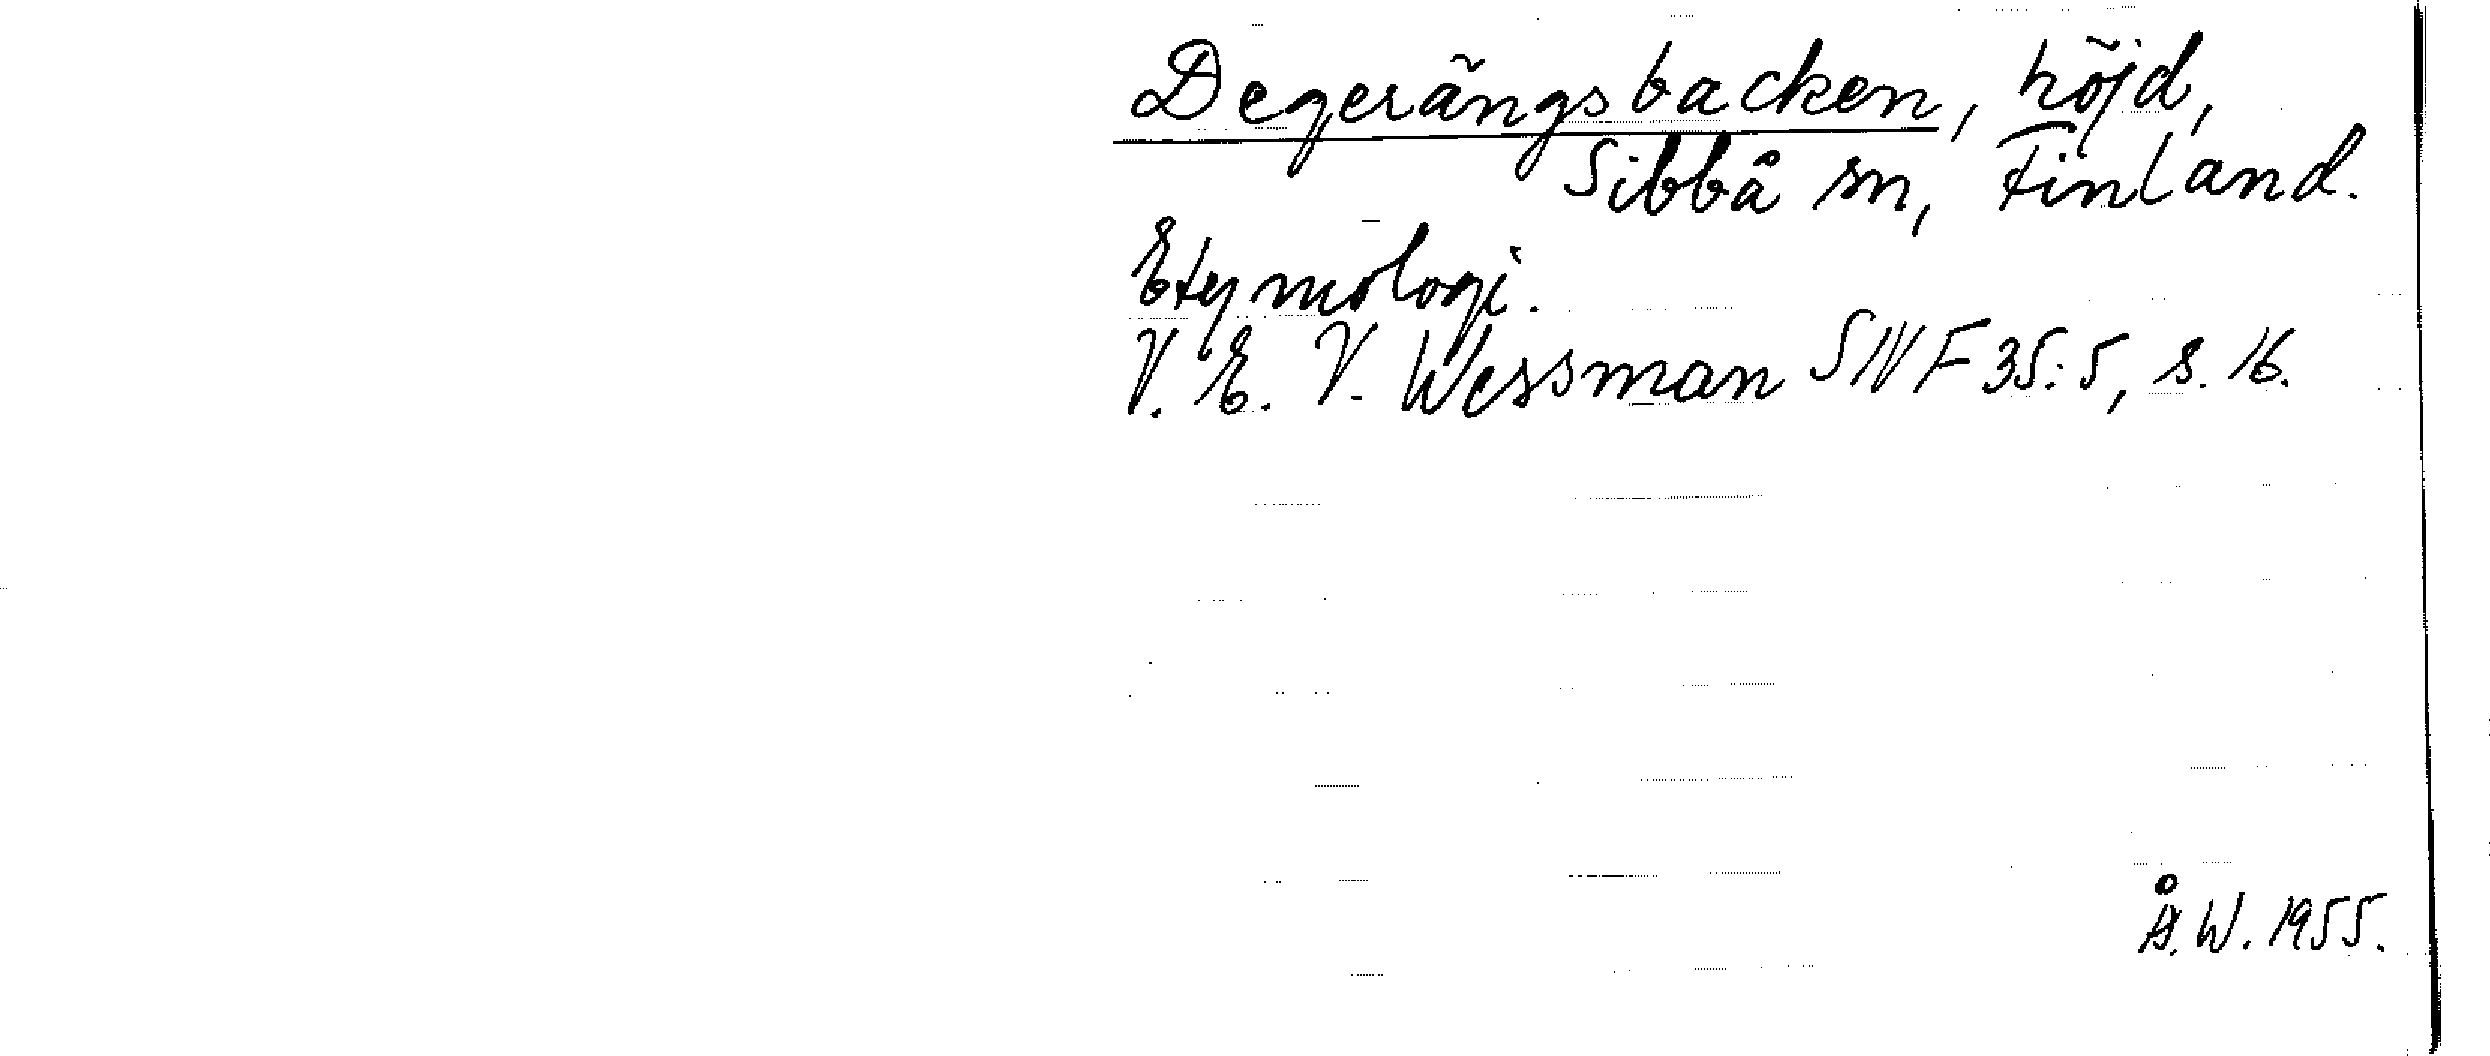 Degerängsbacken, höjd,
Sibbå sn, Finland.
Etymologi.
V. E. V. Wessman SNF 35:5, s. 16.
Å.W. 1955.